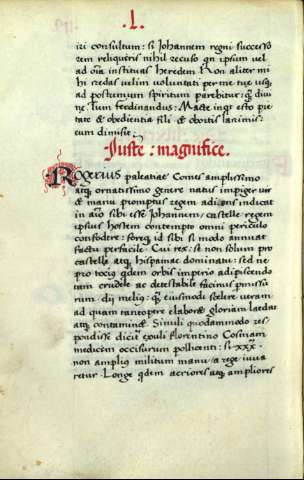 .L.
iri consultum: si Johannem regni successo
rem reliqueris nihil recuso qn ipsum vel
ad oia instituas heredem Non aliter mi
hi credas velim voluntati per me tue usq
ad postremum spiritum parebitur: q divi
ne tum ferdinandus: Macte inqt isto pie
tate & obedientia fili & obortis lacrimis:
eum dimisit
Iuste: magnifice.
ROgerius paleatiae Comes amplissimo
atq ornatissimo genere natus impiger vir
& manu promptus regem adiens indicat
in aio sibi esse Johannem castelle regem
ipsius hostem contempto omni periculo
confodere: foreq id sibi si modo innuat
factu perfacile. Cui rex: si non solum pro
castelle atq hispaniae dominatu: sed ne
pro tocius qdem orbis imperio adipiscendo
tam crudele ac detestabile facinus permissu
rum: dii melius: q eiusmodi scelere veram
ad quam tantopere elaboras gloriam laedas
atq contamines. Simili quodammodo res
pondisse dicit exuli florentino Cosmam
medicem occisurum pollicenti: si xxx.
non amplius militum manu a rege iuva
retur. Longe qdem acriores atq ampliores